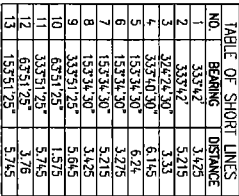 TABLE OF SHORT LINES
NO. BEARING DISTANCE
1 333°42' 3.425
2 333°42' 5.215
3 324°24'30" 3.33
4 333°40'30" 6.145
5 153°34'30" 6.24
6 153°34'30" 3.275
7 153°34'30" 5.215
8 153°34'30" 3.425
9 333°51'25" 5.645
10 63°51'25" 1.575
11 333°51'25" 5.745
12 63°51'25" 3.76
13 153°51'25" 5.745